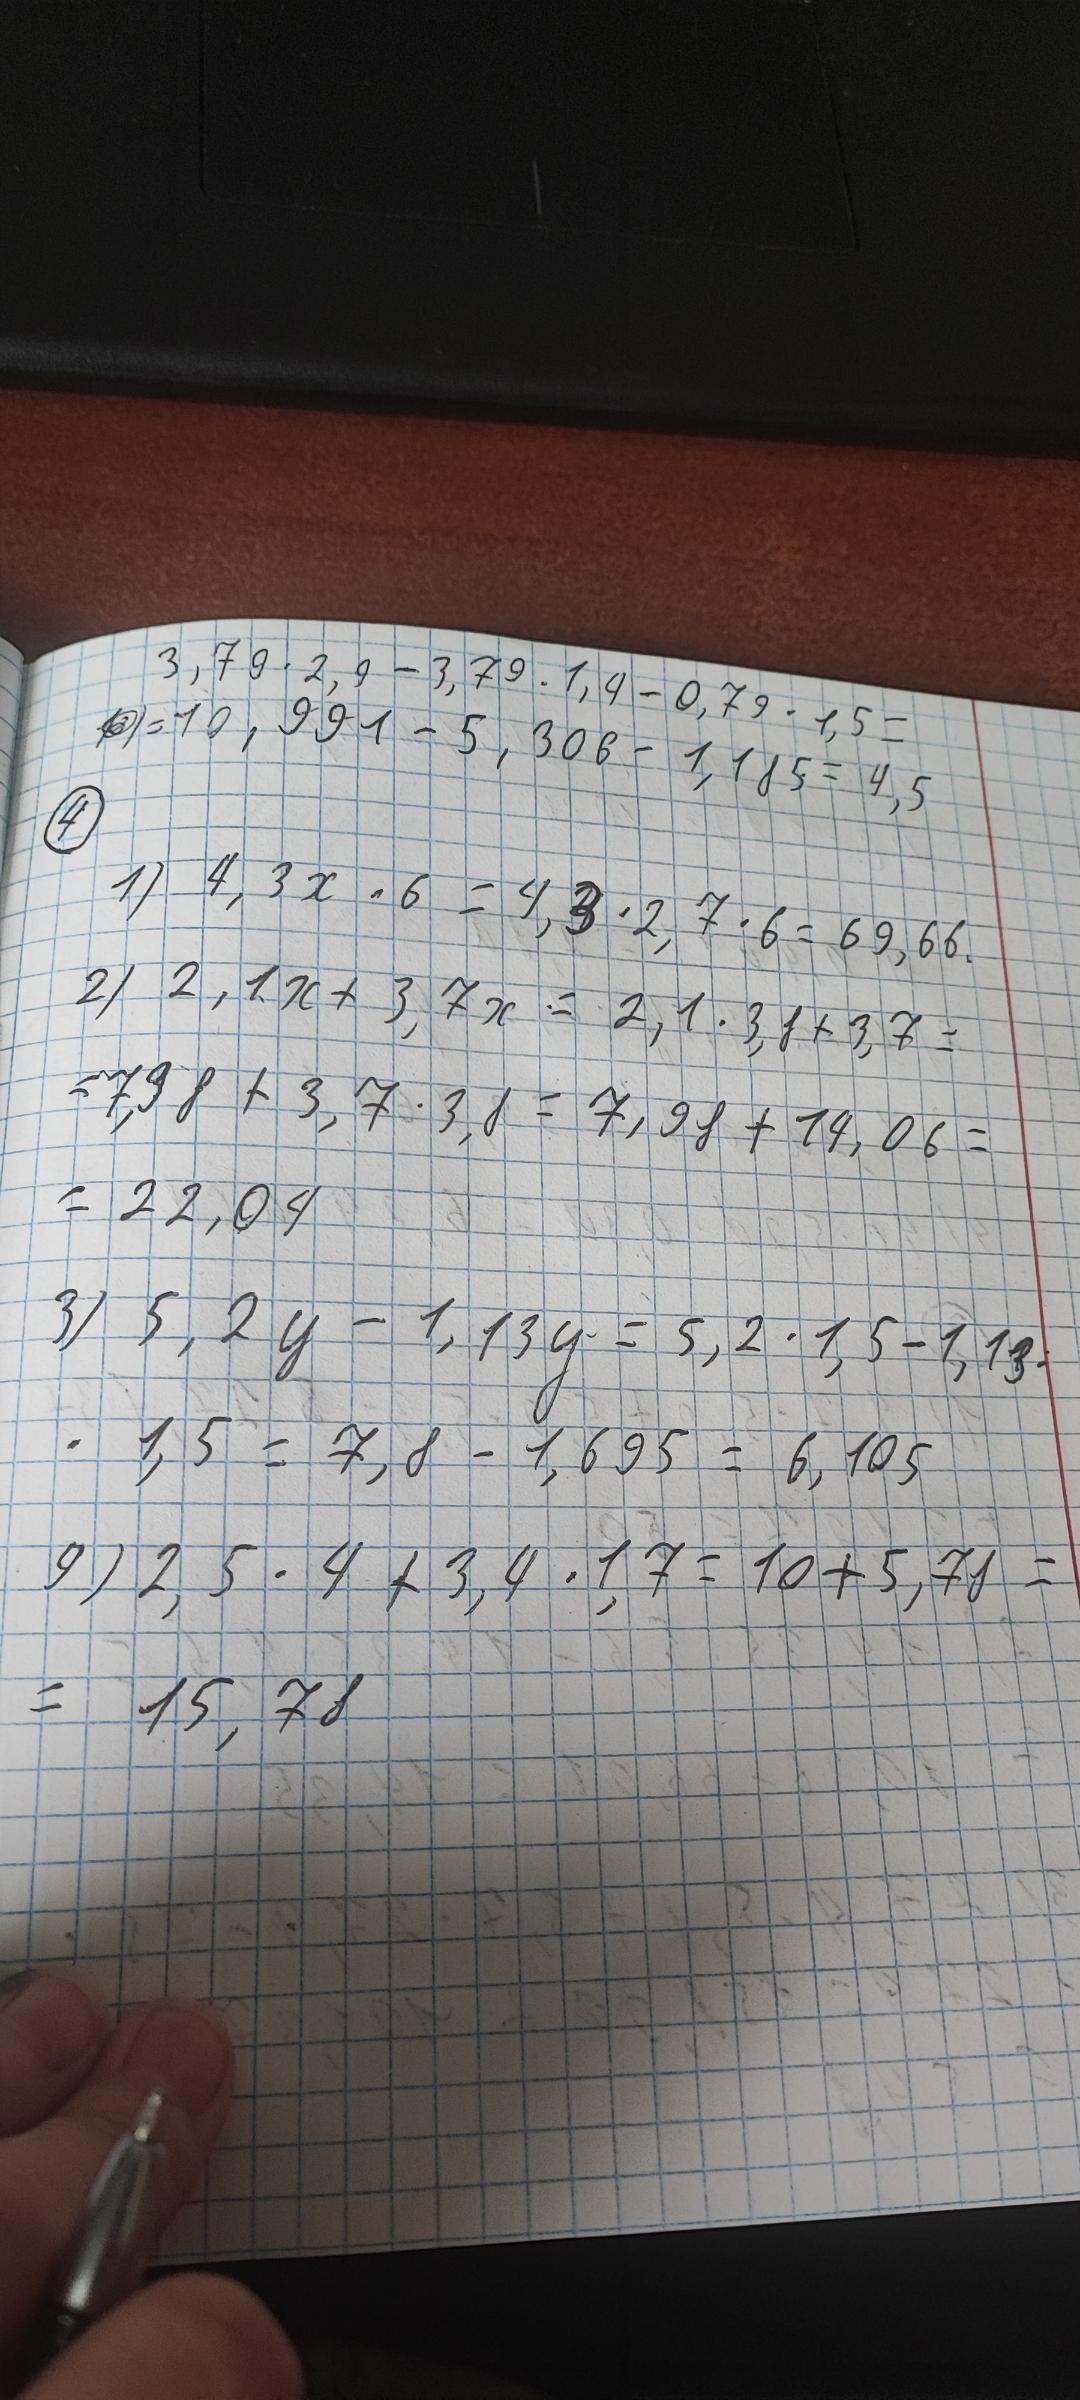 3,79 · 2,9 - 3,79 · 1,4 - 0,79 · 1,5 =
= 10,991 - 5,306 - 1,185 = 4,5
4
1) 4,3x · 6 = 4,3 · 2,7 · 6 = 69,66.
2) 2,1x + 3,7x = 2,1 · 3,8 + 3,7 =
= 7,98 + 3,7 · 3,8 = 7,98 + 14,06 =
= 22,04
3) 5,2y - 1,13y = 5,2 · 1,5 - 1,13 ·
· 1,5 = 7,8 - 1,695 = 6,105
9) 2,5 · 4 + 3,4 · 1,7 = 10 + 5,78 =
= 15,78